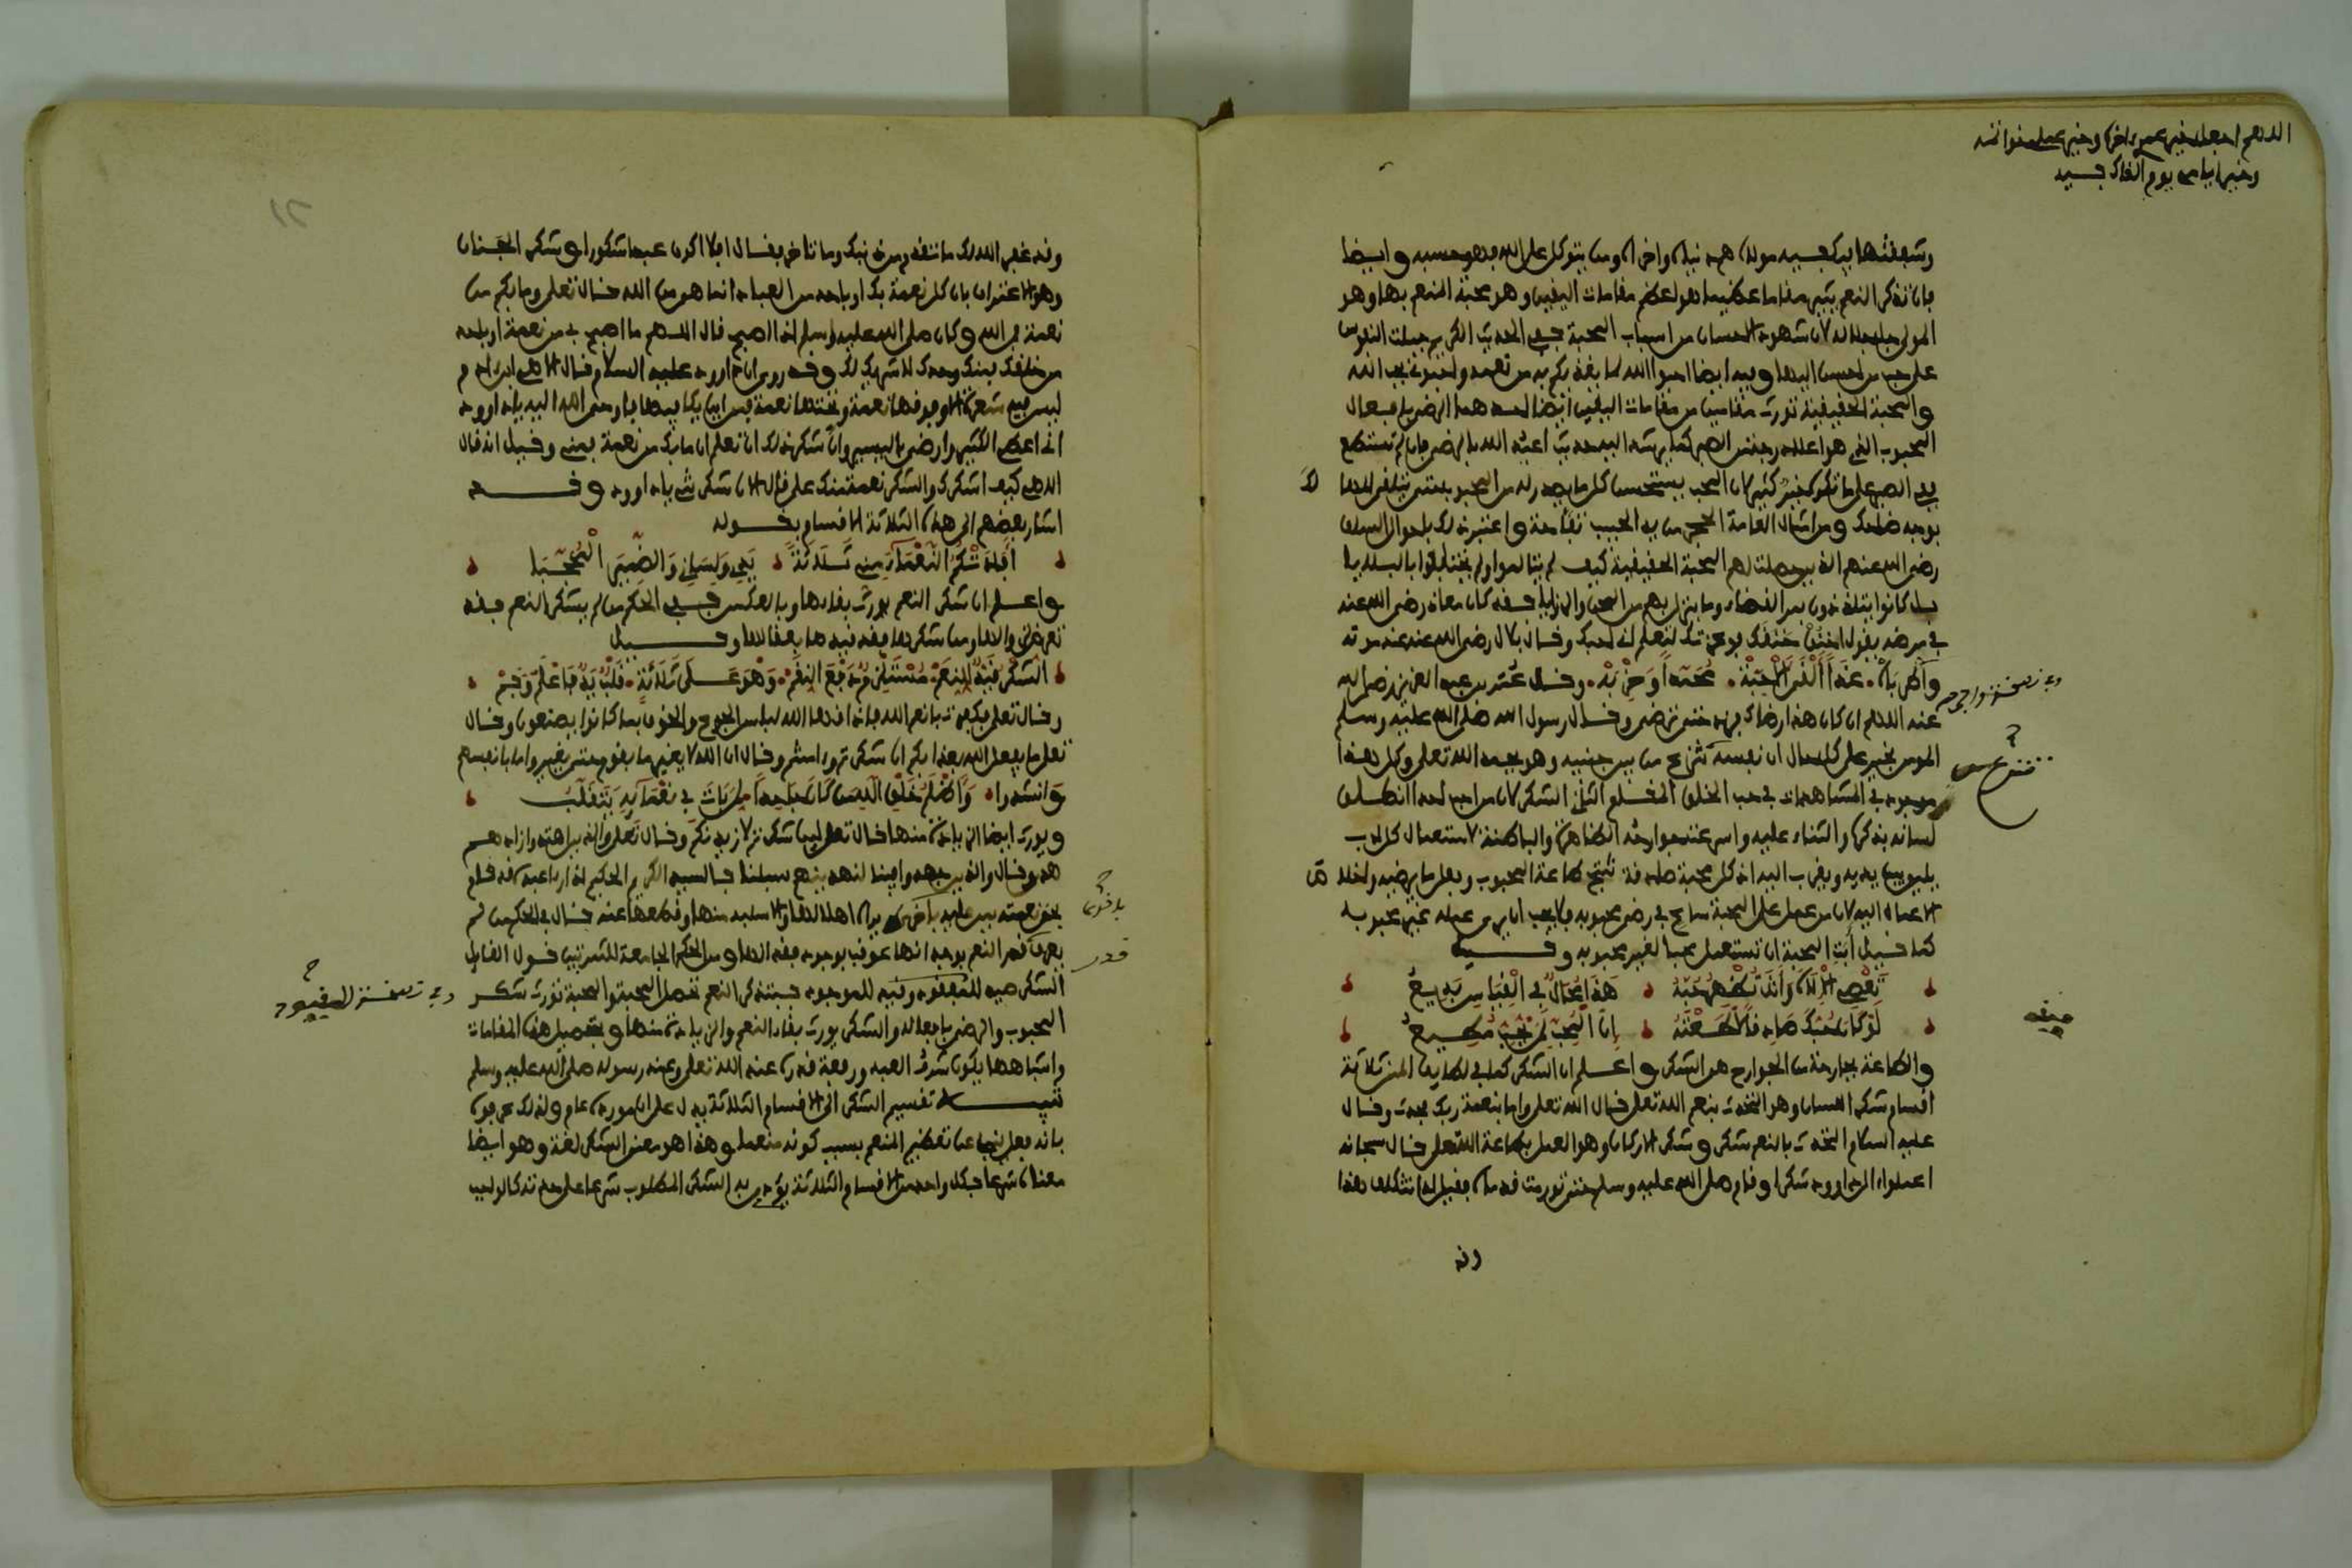 اللهم اجعل خير عمري اخره وخير عملي خواتمه
وخير ايامي يوم القاك فيه
وشفقتها بيد مولاه هم دنياه واخراه ومن يتوكل على الله فهو حسبه وايضا
فان تذكر النعم يثير مقاما عظيما هو اعظم مقامات اليقين وهو محبة المنعم بها وهو
المولى جل جلاله لان شهود الاحسان من اسباب المحبة ففي الحديث الكريم جبلت النفوس
على حب من احسن اليها وفيه ايضا احبوا الله لما يغذوكم به من نعمه واحبوني بحب الله
والمحبة الحقيقية تورث مقامين من مقامات اليقين ايضا احدهما الرضى بافعال
المحبوب الذي هو اعلا درجة من الصبر كما يرشد اليه حديث اعبد الله بالرضى فان لم تستطع
ففي الصبر على ما تكره خير كثير لان المحب يستحسن كل ما يصدر له من المحبوب حتى يتلقى البلا
بوجه ضاحك ومن امثال العامة الحجر من يد الحبيب تفاحة واعتبر ذلك باحوال السلف
رضي الله عنهم الذين حصلت لهم المحبة الحقيقية كيف لم يبالوا ولم يختلفوا بالبلايا
بل كانوا يتلذذون بمر القضاء وما ينزل بهم من المحن والرزايا فقد كان معاذ رضي الله عنه
في مرضه يقول اخنق خنقك فوعزتك لتعلم اني احبك وقال بلال رضي الله عنه عند موته
واطرباه غدا القى الاحبه محمدا وحزبه وقال عمر بن عبد العزيز رضي الله
عنه اللهم ان كان هذا رضاك فزد حتى ترضى وقال رسول الله صلى الله عليه وسلم
المومن بخير على كل حال ان نفسه تنزع من بين جنبيه وهو يحمد الله تعلى وكل هذا
موجود في المشاهدات في حب الخلق المخلوق الثاني الشكر لان من احب احدا انطلق
لسانه بذكره والثناء عليه واسرعت جوارحه الظاهرة والباطنة لاستعمال كل ادب
يليق بين يديه ويقرب اليه اذ كل محبة صادقة تنتج طاعة المحبوب وفعل ما يرضيه واخلاص
الاعمال اليه لان من عمل على المحبة سارع في رضى محبوبه ولا يحب ان يرى عمله غير محبوبه
كما قيل ابت المحبة ان تستعمل محبا لغير محبوبه وقيل
تعصي الاله وانت تظهر حبه هذا محال في القياس بديع
لو كان حبك صادقا لاطعته ان المحب لمن يحب مطيع
والطاعة بجارحة من الجوارح هو الشكر واعلم ان الشكر كما في لطايف المنن ثلاثة
اقسام شكر اللسان وهو التحدث بنعم الله تعلى قال الله تعلى واما بنعمة ربك فحدث وقال
عليه السلام التحدث بالنعم شكر وشكر الاركان وهو العمل بطاعة الله تعلى قال سبحانه
اعملوا ءال داوود شكرا وقام صلى الله عليه وسلم حتى تورمت قدماه فقيل له اتتكلف هذا
وقد
وقد غفر الله لك ما تقدم من ذنبك وما تاخر فقال افلا اكون عبدا شكورا وشكر الجنان
وهو الاعتراف بان كل نعمة بك او باحد من العباد انما هو من الله قال تعلى وما بكم من
نعمة فمن الله وكان صلى الله عليه وسلم اذا اصبح قال اللهم ما اصبح بي من نعمة او باحد
من خلقك فمنك وحدك لا شريك لك وقد روي ان داوود عليه السلام قال الاهي ابن ادم
ليس فيه شعرة الا وفوقها نعمة وتحتها نعمة فمن اين يكافيها فاوحى الله اليه يا داوود
اني اعطي الكثير وارضى باليسير وان شكر ذلك ان تعلم ان ما بك من نعمة فمني وقيل انه قال
الاهي كيف اشكرك والشكر نعمة منك علي قال الان شكرتني يا داوود وقد
اشار بعضهم الى هذه الثلاثة الاقسام بقوله
افادتكم النعماء مني ثلاثة يدي ولساني والضمير المحجبا
واعلم ان شكر النعم يورث بقاءها وبالعكس ففي الحكم من لم يشكر النعم فقد
تعرض لزوالها ومن شكرها فقد قيدها بعقالها وقيل
الشكر قيد للنعم مستلزم دفع النقم وهو على ثلاثة قلب يد فاعلم وفم
وقال تعلى فكفرت بانعم الله فاذاقها الله لباس الجوع والخوف بما كانوا يصنعون وقال
تعلى ما يفعل الله بعذابكم ان شكرتم وءامنتم وقال ان الله لا يغير ما بقوم حتى يغيروا ما بانفسهم
وانشدوا واظلم خلق الله من كان جاحدا لمن بات في نعمائه يتقلب
ويورث ايضا الزيادة منها قال تعلى لين شكرتم لازيدنكم وقال تعلى والذين اهتدوا زادهم
هدى وقال والذين جاهدوا فينا لنهدينهم سبلنا فالسيد الكريم الحكيم اذا راى عبده قد قام
بحق نعمته من عليه باخرى يراه اهلا لها والا سلبه منها وقطعها عنه قال في الحكم من لم
يعرف قدر النعم بوجدانها عرف بوجود فقدانها ومن الحكم الجامعة للشرتين قول القايل
الشكر صيد للمفقود وقيد للموجود فبتذكر النعم تحصل المحبة والمحبة تورث شكر
المحبوب والرضى بافعاله والشكر يورث بقاء النعم والزيادة منها وبتحصيل هذه المقامات
واشباهها يكون شرف العبد ورفعة قدره عند الله تعلى وعند رسوله صلى الله عليه وسلم
تنبيه تقسيم الشكر الى الاقسام الثلاثة يدل على ان مورده عام ولذلك عرفوه
بانه فعل ينبئ عن تعظيم المنعم بسبب كونه منعما وهذا هو معنى الشكر لغة وهو ايضا
معناه شرعا فبكل واحد من الاقسام الثلاثة يؤدى به الشكر المطلوب شرعا على حدته كالواجب